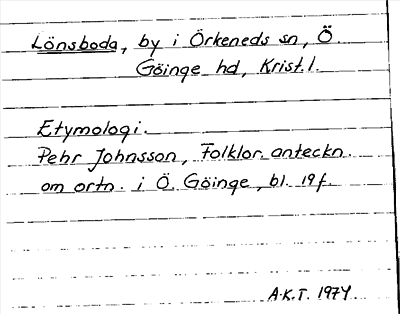 Lönsboda, by i Örkeneds sn, Ö.
Göinge hd, Krist. l.
Etymologi.
Pehr Johnsson, Folklor. anteckn.
om ortn. i Ö. Göinge, bl. 19 f.
A.K.T. 1974